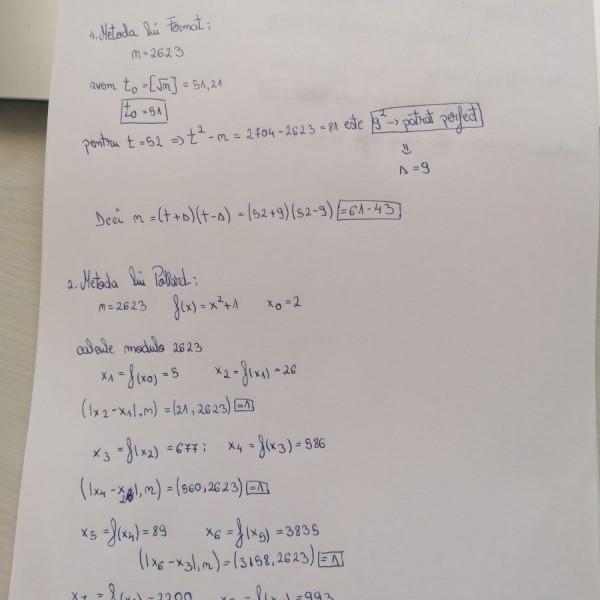 1. Metoda lui Fermat:
n=2623
avem t₀=[√n] = 51,21
t₀=51
pentru t=52 ⇒ t²-n = 2704-2623=81 este 9² → pătrat perfect
⇓
s=9
Deci n=(t+s)(t-s) = (52+9)(52-9) =61·43
2. Metoda lui Pollard:
n=2623 f(x)=x²+1 x₀=2
calcule modulo 2623
x₁=f(x₀)=5 x₂=f(x₁)=26
(|x₂-x₁|,n)=(21,2623)=1
x₃=f(x₂)=677; x₄=f(x₃)=586
(|x₄-x₂|,n)=(560,2623)=1
x₅=f(x₄)=89 x₆=f(x₅)=3835
(|x₆-x₃|,n)=(3158,2623)=1